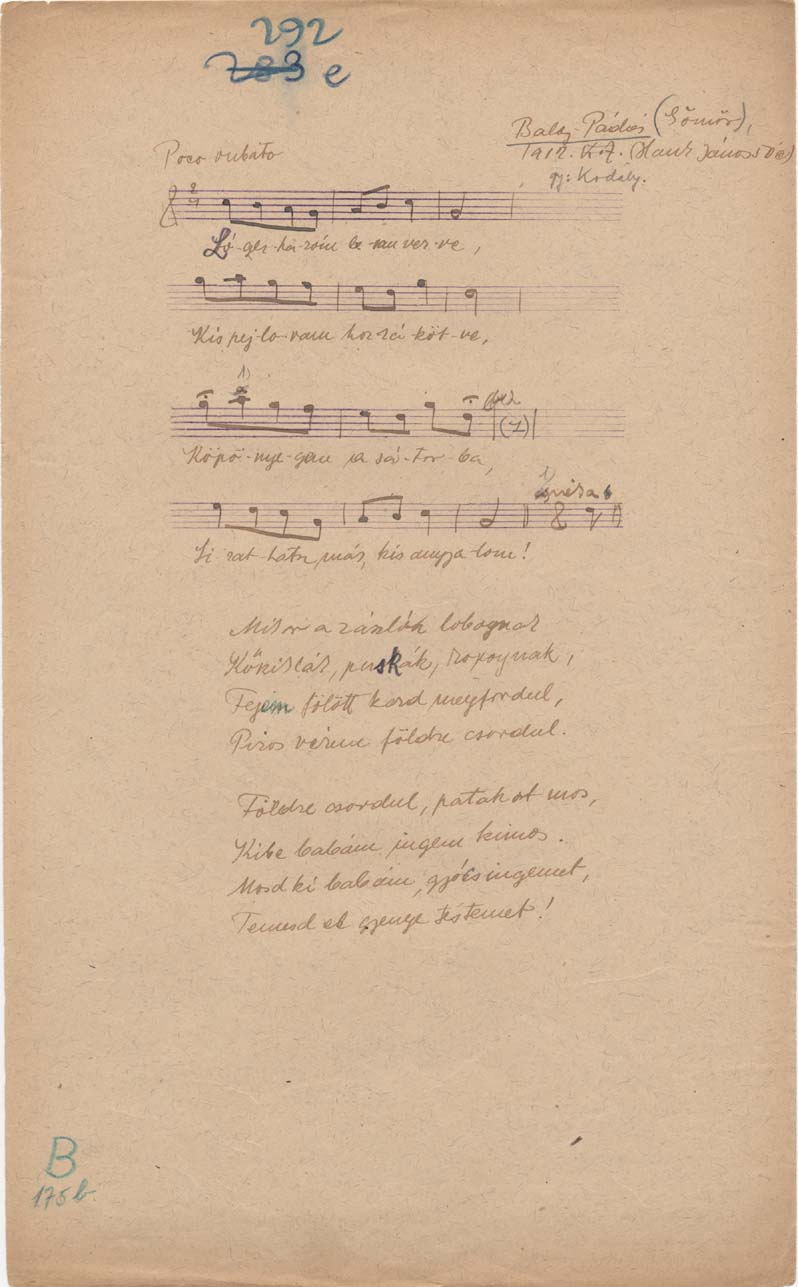 292
283 e
Balog-Pádár (Gömör),
1912. K.Z. (Hank János
gy: Kodály.
Poco rubato
-ges-ká-róm le van ver-ve,
Kis pej-lo-vam hoz-zá-köt-ve,
1)
Köpö-nye-gem a sá-tor-ba,
Si-rat-hatsz már, kis angya-lom!
Mikor a zászlók lobognak
puskák, ropognak,
Fejem fölött kard megfordul,
Piros vérem földre csordul.
Földre csordul, patakot mos,
Kibe babám ingem kimos.
Mosd ki babám, gyócsingemet,
Temesd el gyenge testemet!
B
175b.